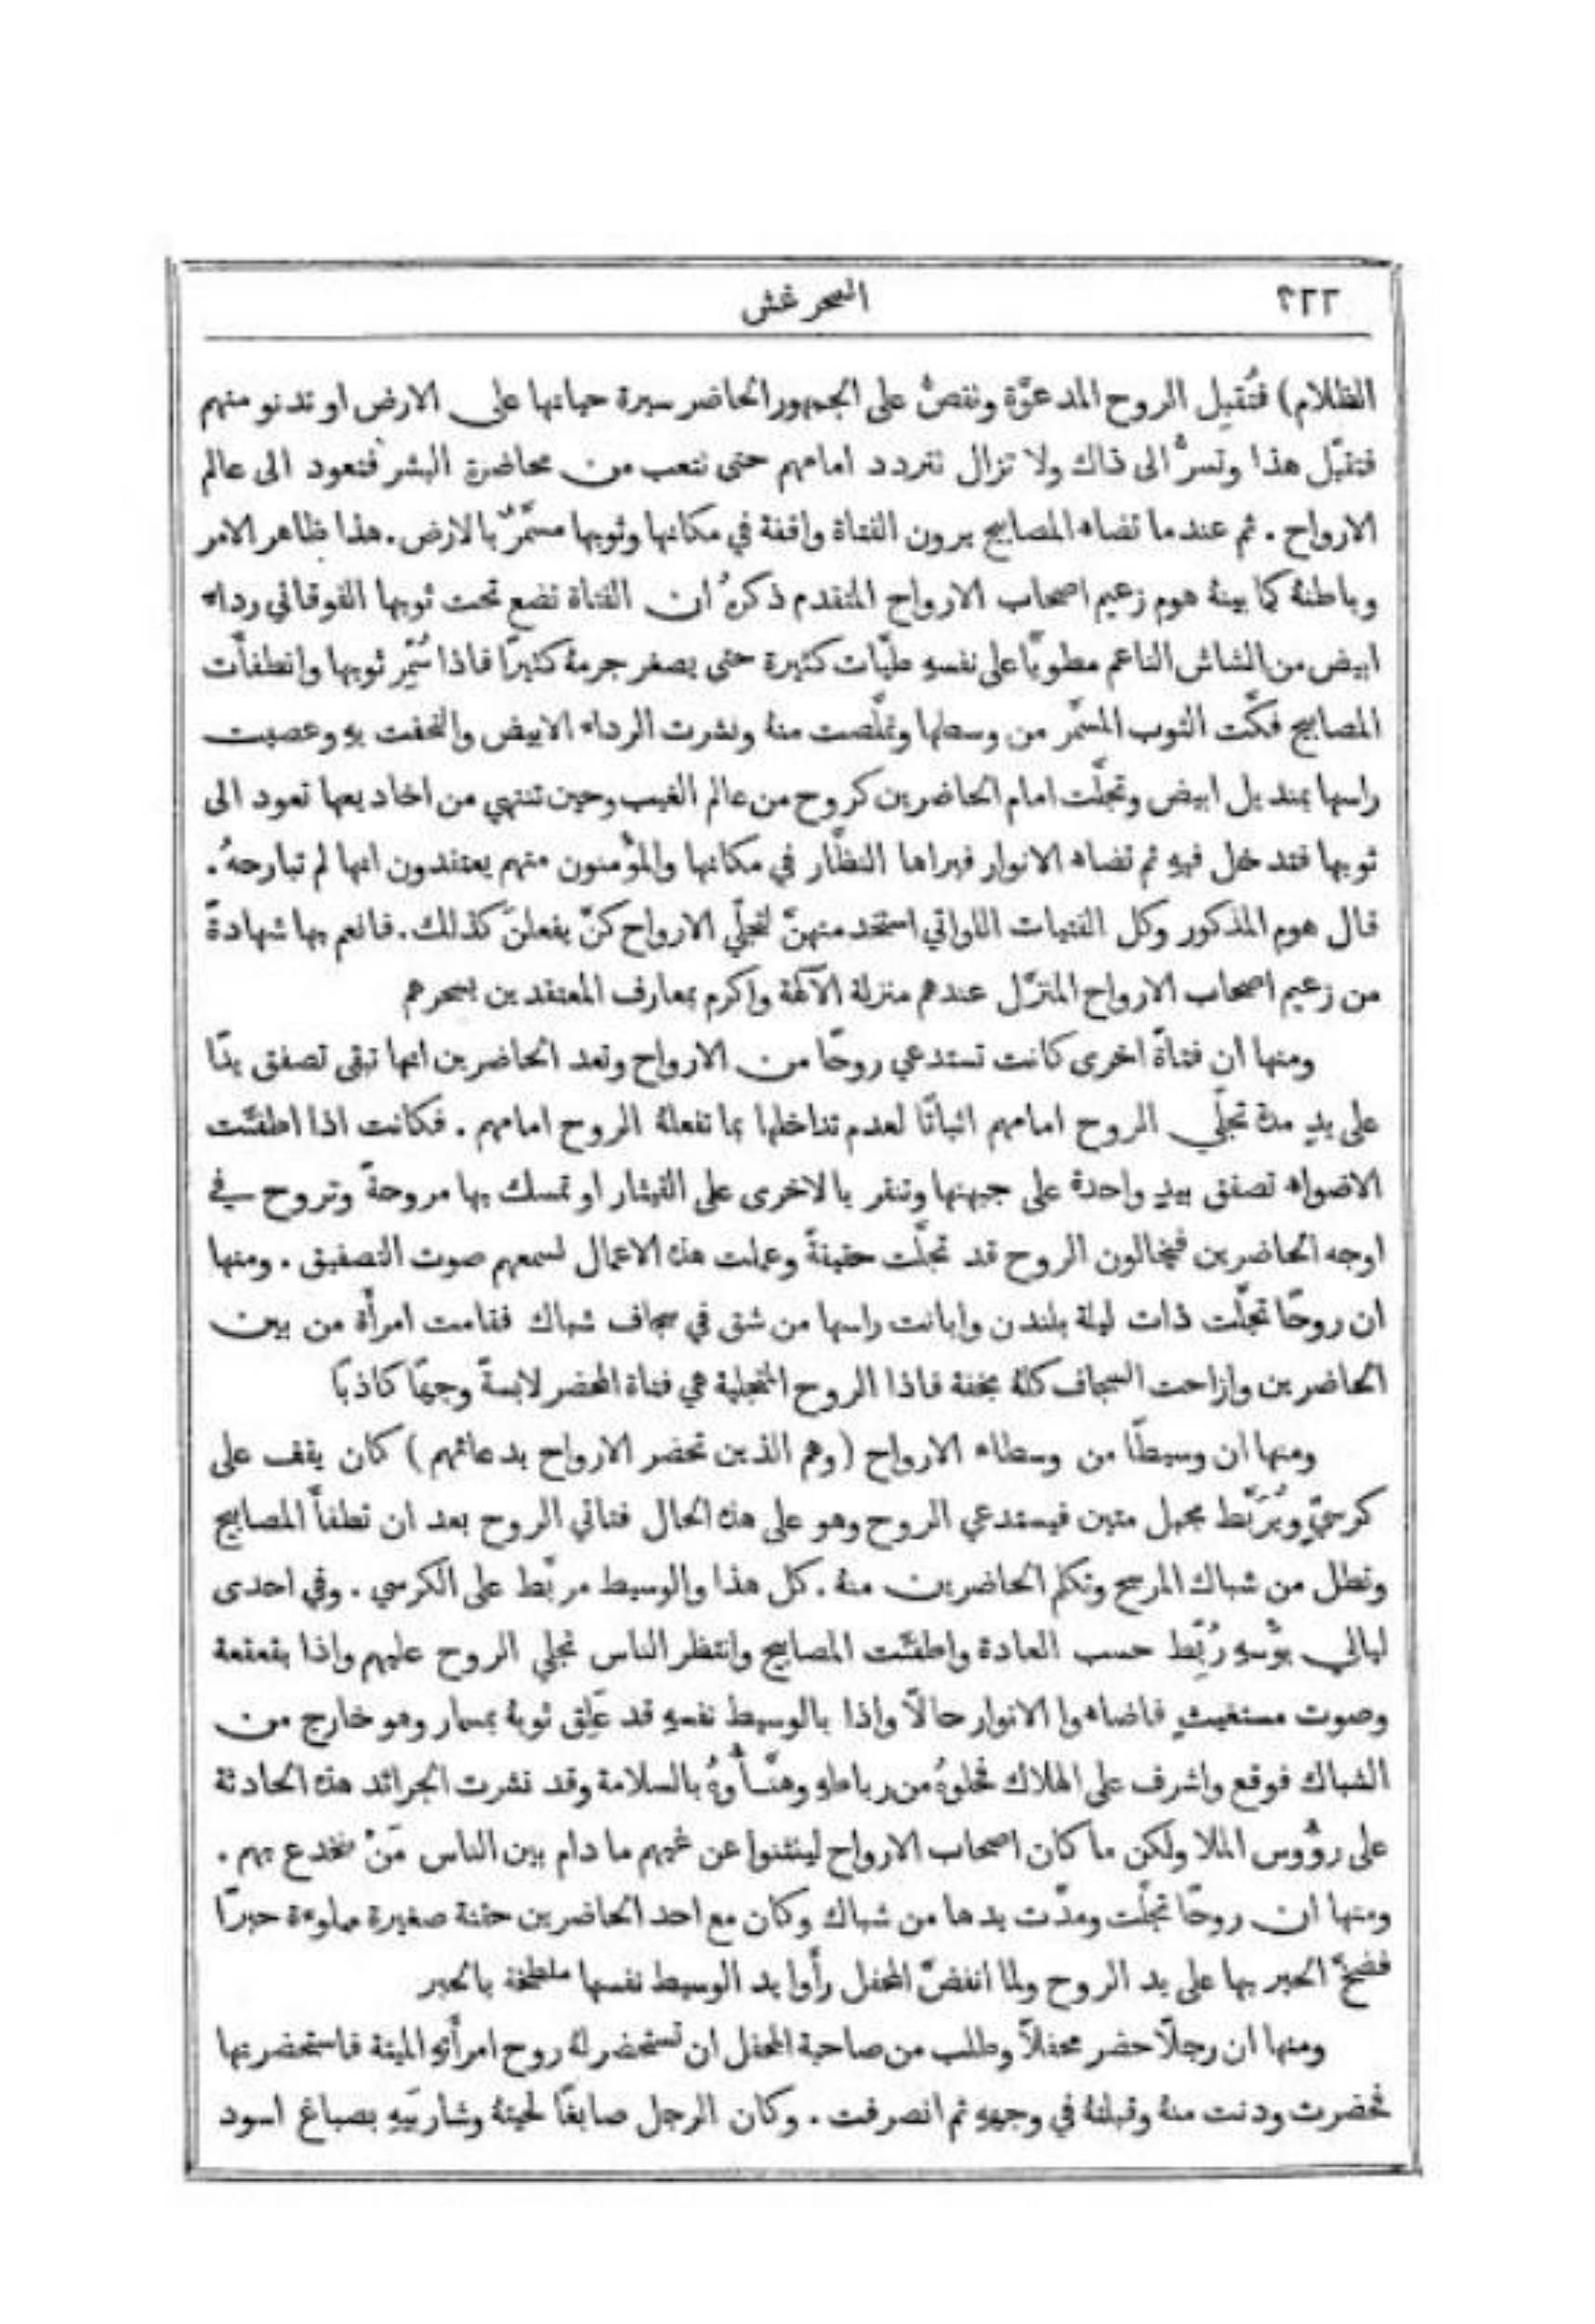 السحر غش ٢٢٢
الظلام) فتُقبِل الروح المدعوَّة ونقصُّ على الجمهور الحاضر سيرة حياتها على الارض او تدنو منهم
فتقبّل هذا وتسرُّ الى ذاك ولا تزال تتردد امامهم حتى نتعب من محاضرة البشر فتعود الى عالم
الارواح . ثم عندما تضاء المصابيح يرون الفتاة واقفة في مكانها وثوبها مسمَّرٌ بالارض . هذا ظاهر الامر
وباطنهُ كما بينهُ هوم زعيم اصحاب الارواح المتقدم ذكرهُ ان الفتاة تضع تحت ثوبها الفوقاني رداء
ابيض من الشاش الناعم مطويًّا على نفسهِ طيّات كثيرة حتى يصغر جرمهُ كثيرًا فاذا سُمِّر ثوبها وانطفأت
المصابيح فكَّت الثوب المسمَّر من وسطها وتملَّصت منهُ ونشرت الرداء الابيض والتحفت بهِ وعصبت
راسها بمنديل ابيض وتجلَّت امام الحاضرين كروح من عالم الغيب وحين تنتهي من اخاديعها تعود الى
ثوبها فتدخل فيهِ ثم تضاء الانوار فيراها النظَّار في مكانها والمؤمنون منهم يعتقدون انها لم تبارحهُ .
قال هوم المذكور وكل الفتيات اللواتي استخدمتهنَّ لتجلّي الارواح كنَّ يفعلنَ كذلك . فانعم بها شهادةً
من زعيم اصحاب الارواح المنزَّل عندهم منزلة الآلهة واكرم بمعارف المعتقدين بسحرهم
ومنها ان فتاةً اخرى كانت تستدعي روحًا من الارواح وتعد الحاضرين انها تبقى تصفق يدًا
على يدٍ مدة تجلّي الروح امامهم اثباتًا لعدم تداخلها بما تفعلهُ الروح امامهم . فكانت اذا اطفئت
الاضواء تصفق بيدٍ واحدة على جبهتها وتنقر بالاخرى على القيثار او تمسك بها مروحةً وتروح في
اوجه الحاضرين فيخالون الروح قد تجلَّت حقيقةً وعملت هذه الاعمال لسمعهم صوت التصفيق . ومنها
ان روحًا تجلَّت ذات ليلة بلندن وابانت راسها من شق في سجاف شباك فقامت امرأة من بين
الحاضرين وازاحت السجاف كلهُ بخفة فاذا الروح المتجلية هي فتاة المحضر لابسةً وجهًا كاذبًا
ومنها ان وسيطًا من وسطاء الارواح (وهم الذين تحضر الارواح بدعائهم) كان يقف على
كرسيٍّ ويُرَبَّط بحبل متين فيستدعي الروح وهو على هذه الحال فتاتي الروح بعد ان تطفأ المصابيح
وتطل من شباك المرسح وتكلم الحاضرين منهُ . كل هذا والوسيط مربَّط على الكرسي . وفي احدى
ليالي بؤسهِ رُبِّط حسب العادة واطفئت المصابيح وانتظر الناس تجلي الروح عليهم واذا بقعقعة
وصوت مستغيثٍ فاضاءوا الانوار حالًا واذا بالوسيط نفسهِ قد عَلِق ثوبهُ بمسمار وهو خارج من
الشباك فوقع واشرف على الهلاك فحلوهُ من رباطهِ وهنَّأوهُ بالسلامة وقد نشرت الجرائد هذه الحادثة
على رؤُوس الملا ولكن ما كان اصحاب الارواح لينثنوا عن غيهم ما دام بين الناس مَنْ يخدع بهم .
ومنها ان روحًا تجلَّت ومدَّت يدها من شباك وكان مع احد الحاضرين حقنة صغيرة مملوءة حبرًا
فضخَّ الحبر بها على يد الروح ولما انفضَّ المحفل رأوا يد الوسيط نفسها ملطخة بالحبر
ومنها ان رجلًا حضر محفلًا وطلب من صاحبة المحفل ان تستحضر لهُ روح امرأتهِ الميتة فاستحضرتها
فحضرت ودنت منهُ وقبلتهُ في وجههِ ثم انصرفت . وكان الرجل صابغًا لحيتهُ وشاربَيهِ بصباغ اسود